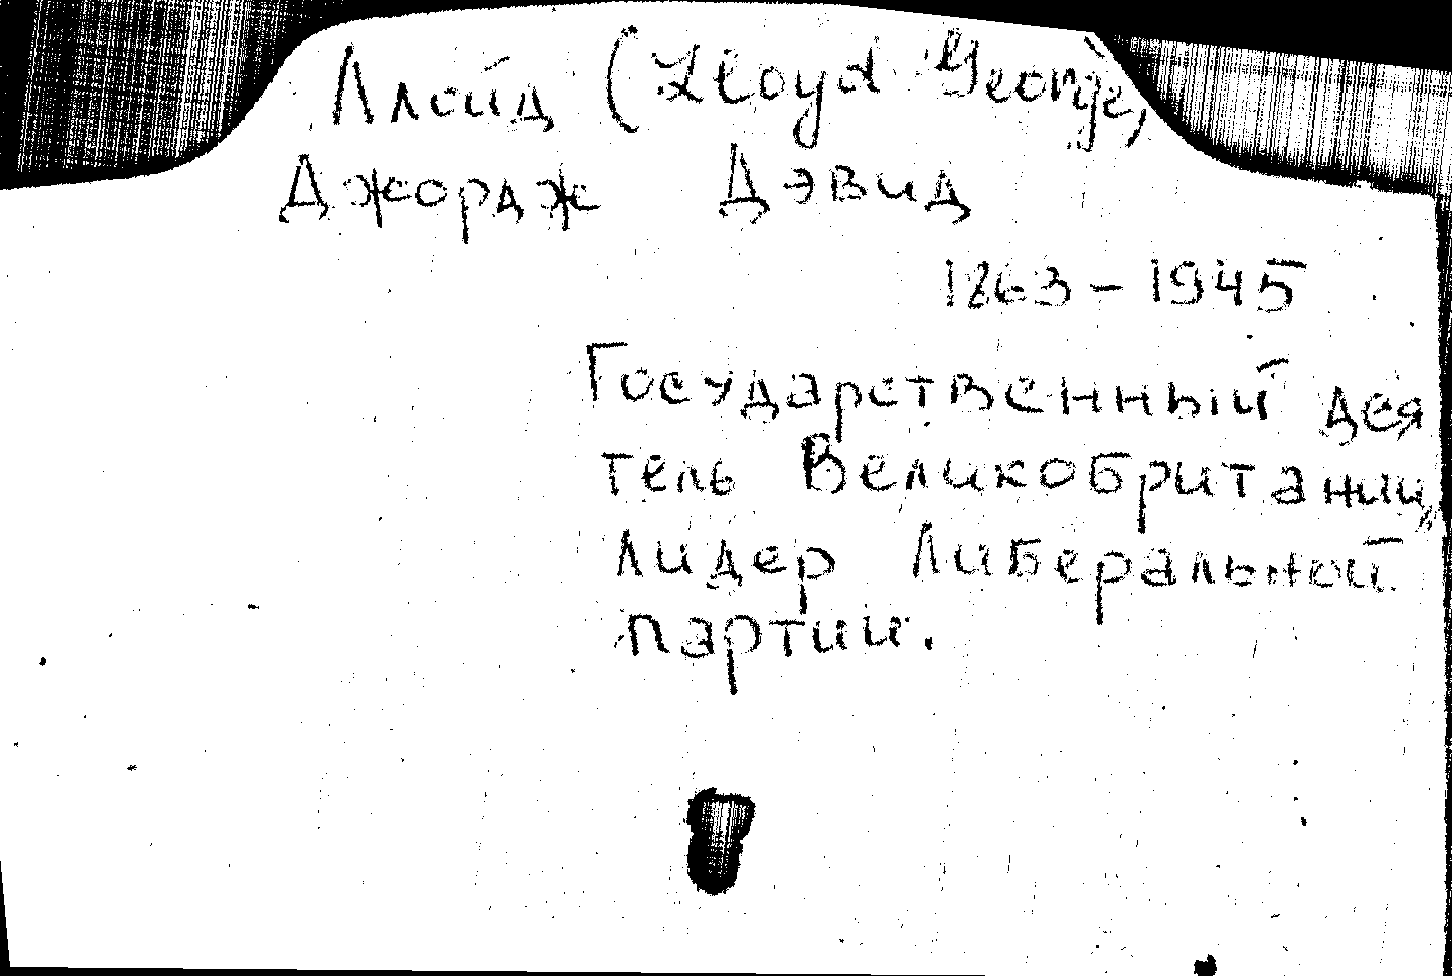 Ллойд (Lloyd George,
Джордж Дэвид
1863-1945
Государственный дея
тель Великобритании,
лидер Либеральной
партии.